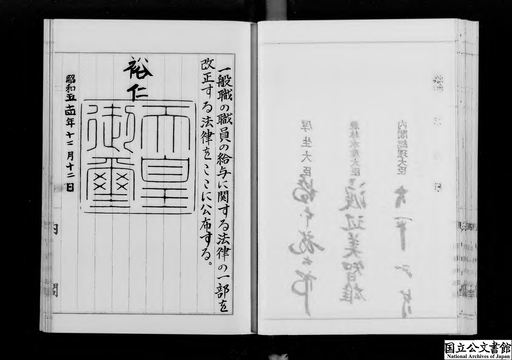 内閣総理大臣
農林水産大臣 渡辺美智雄
厚生大臣
一般職の職員の給与に関する法律の一部を
改正する法律をここに公布する。
裕仁
天皇
御璽
昭和五十四年十二月十二日
国立公文書館
National Archives of Japan